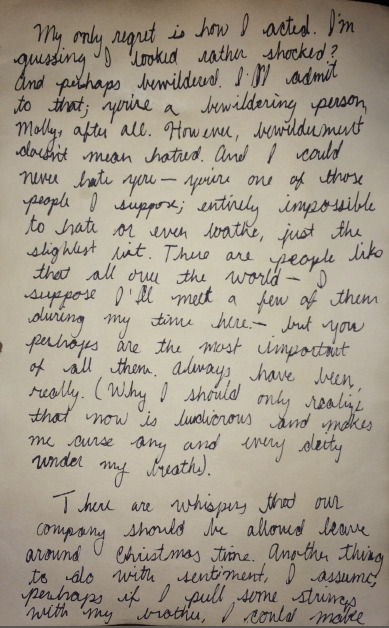 My only regret is how I acted. I'm
guessing I looked rather shocked?
And perhaps bewildered. I'll admit
to that; you're a bewildering person,
Molly, after all. However, bewilderment
doesn't mean hatred. And I could
never hate you — you're one of those
people I suppose; entirely impossible
to hate or even loathe, just the
slightest bit. There are people like
that all over the world — I
suppose I'll meet a few of them
during my time here — but you
perhaps are the most important
of all them. Always have been,
really. (Why I should only realize
that now is ludicrous and makes
me curse any and every deity
under my breath).
There are whispers that our
company should be allowed leave
around Christmas time. Another thing
to do with sentiment, I assume,
perhaps if I pull some strings
with my brother, I could make